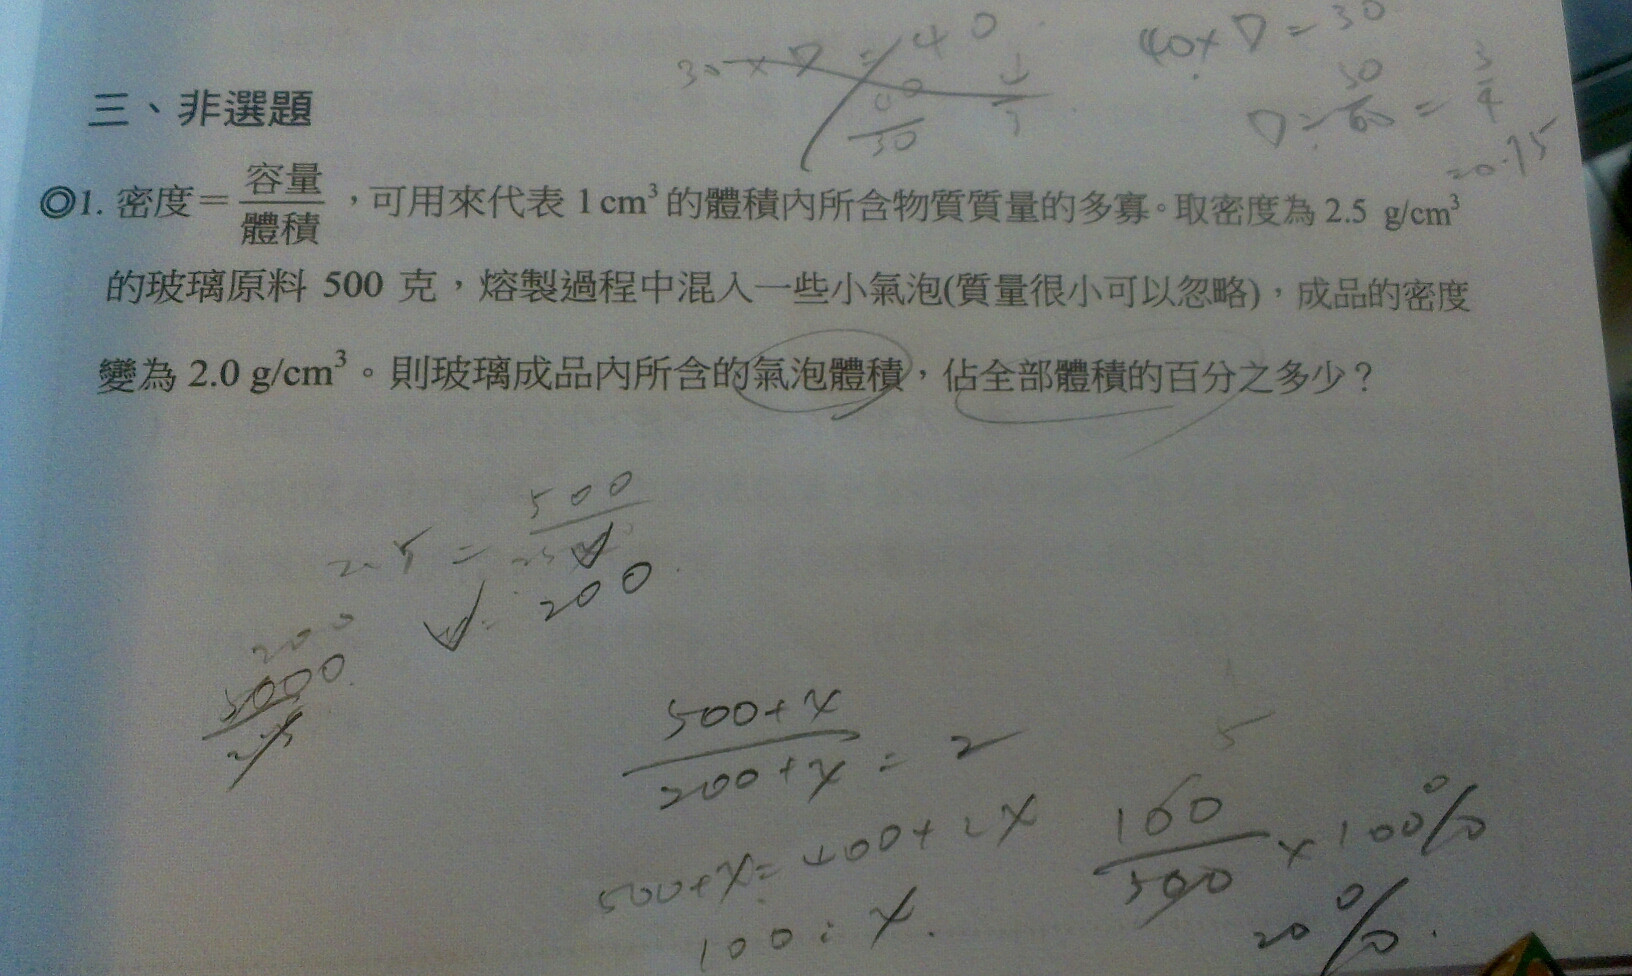 30 × V = 40
40 × V = 30
三、非選題
◎1. 密度=容量/體積，可用來代表 1 cm³ 的體積內所含物質質量的多寡。取密度為 2.5 g/cm³
的玻璃原料 500 克，熔製過程中混入一些小氣泡(質量很小可以忽略)，成品的密度
變為 2.0 g/cm³。則玻璃成品內所含的氣泡體積，佔全部體積的百分之多少？
2.5 = 500/V
V = 200
200
5000/25
500+x/200+x = 2
500+x = 400+2x
100 = x.
100/500 × 100%
20%.